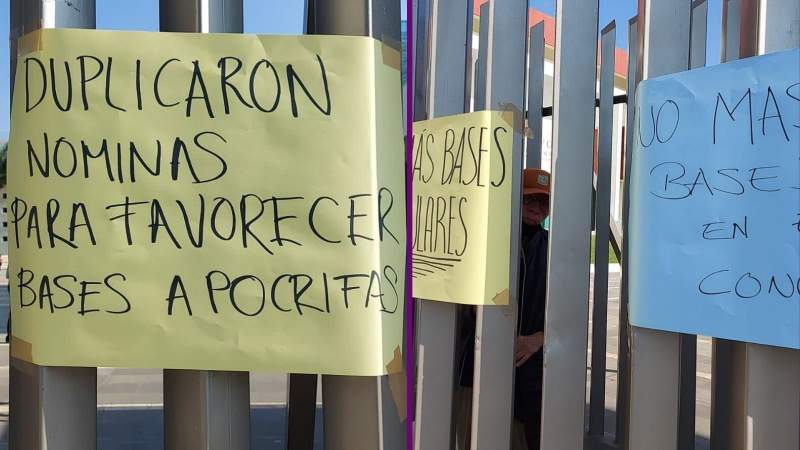 DUPLICARON
NOMINAS
PARA FAVORECER
BASES APOCRIFAS
ÁS BASES
ULARES
NO MAS
BASE
EN
CONC